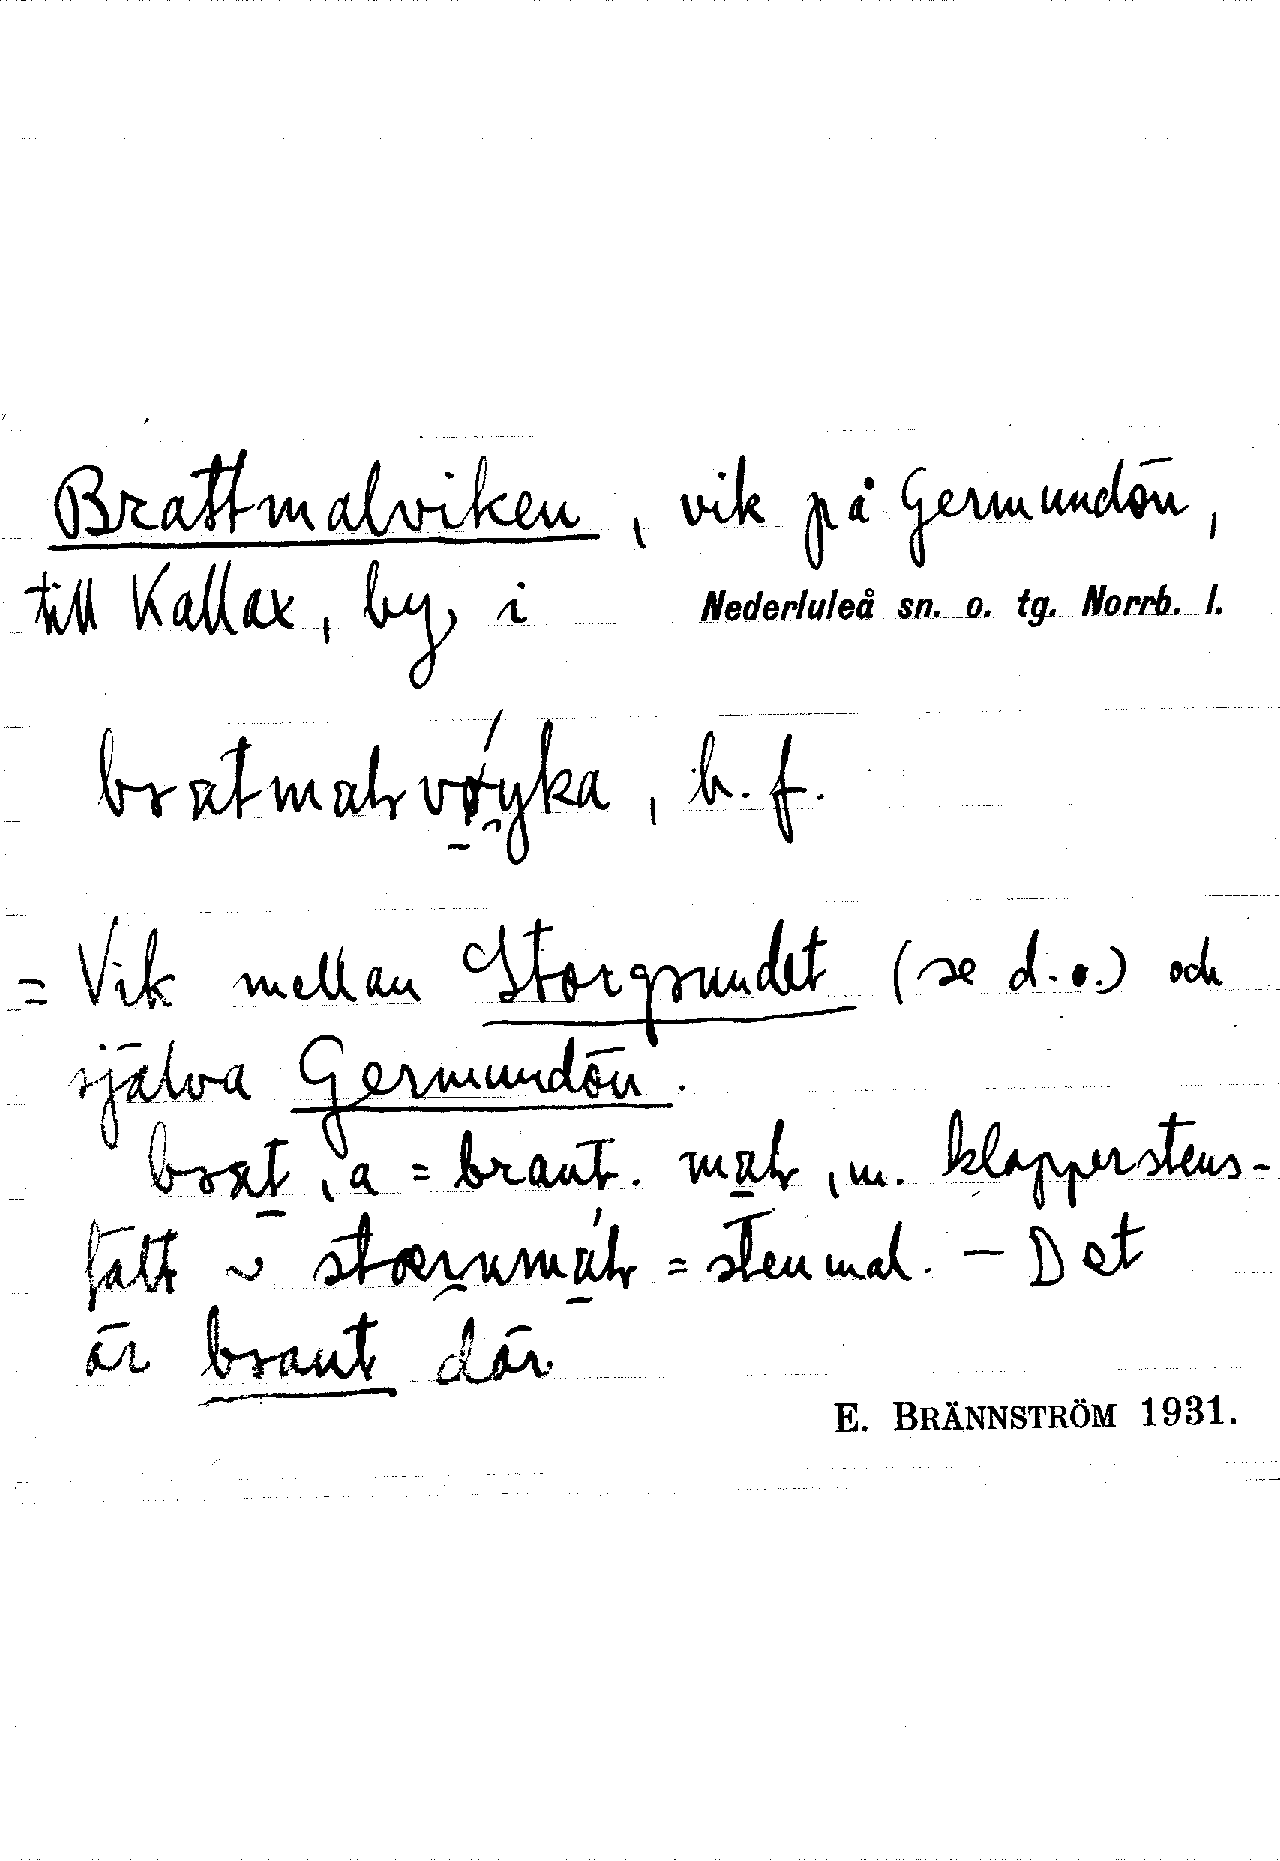 Brattmalviken, vik på Germundön,
till Kallax, by, i Nederluleå sn. o. tg. Norrb. l.
bratmalvøyka, b. f.
= Vik mellan Storgrundet (se d.o.) och
själva Germundön.
brat, a = brant. mal, m. klapperstens-
fält ~ stæinmal = stenmal. — Det
är brant där
E. BRÄNNSTRÖM 1931.